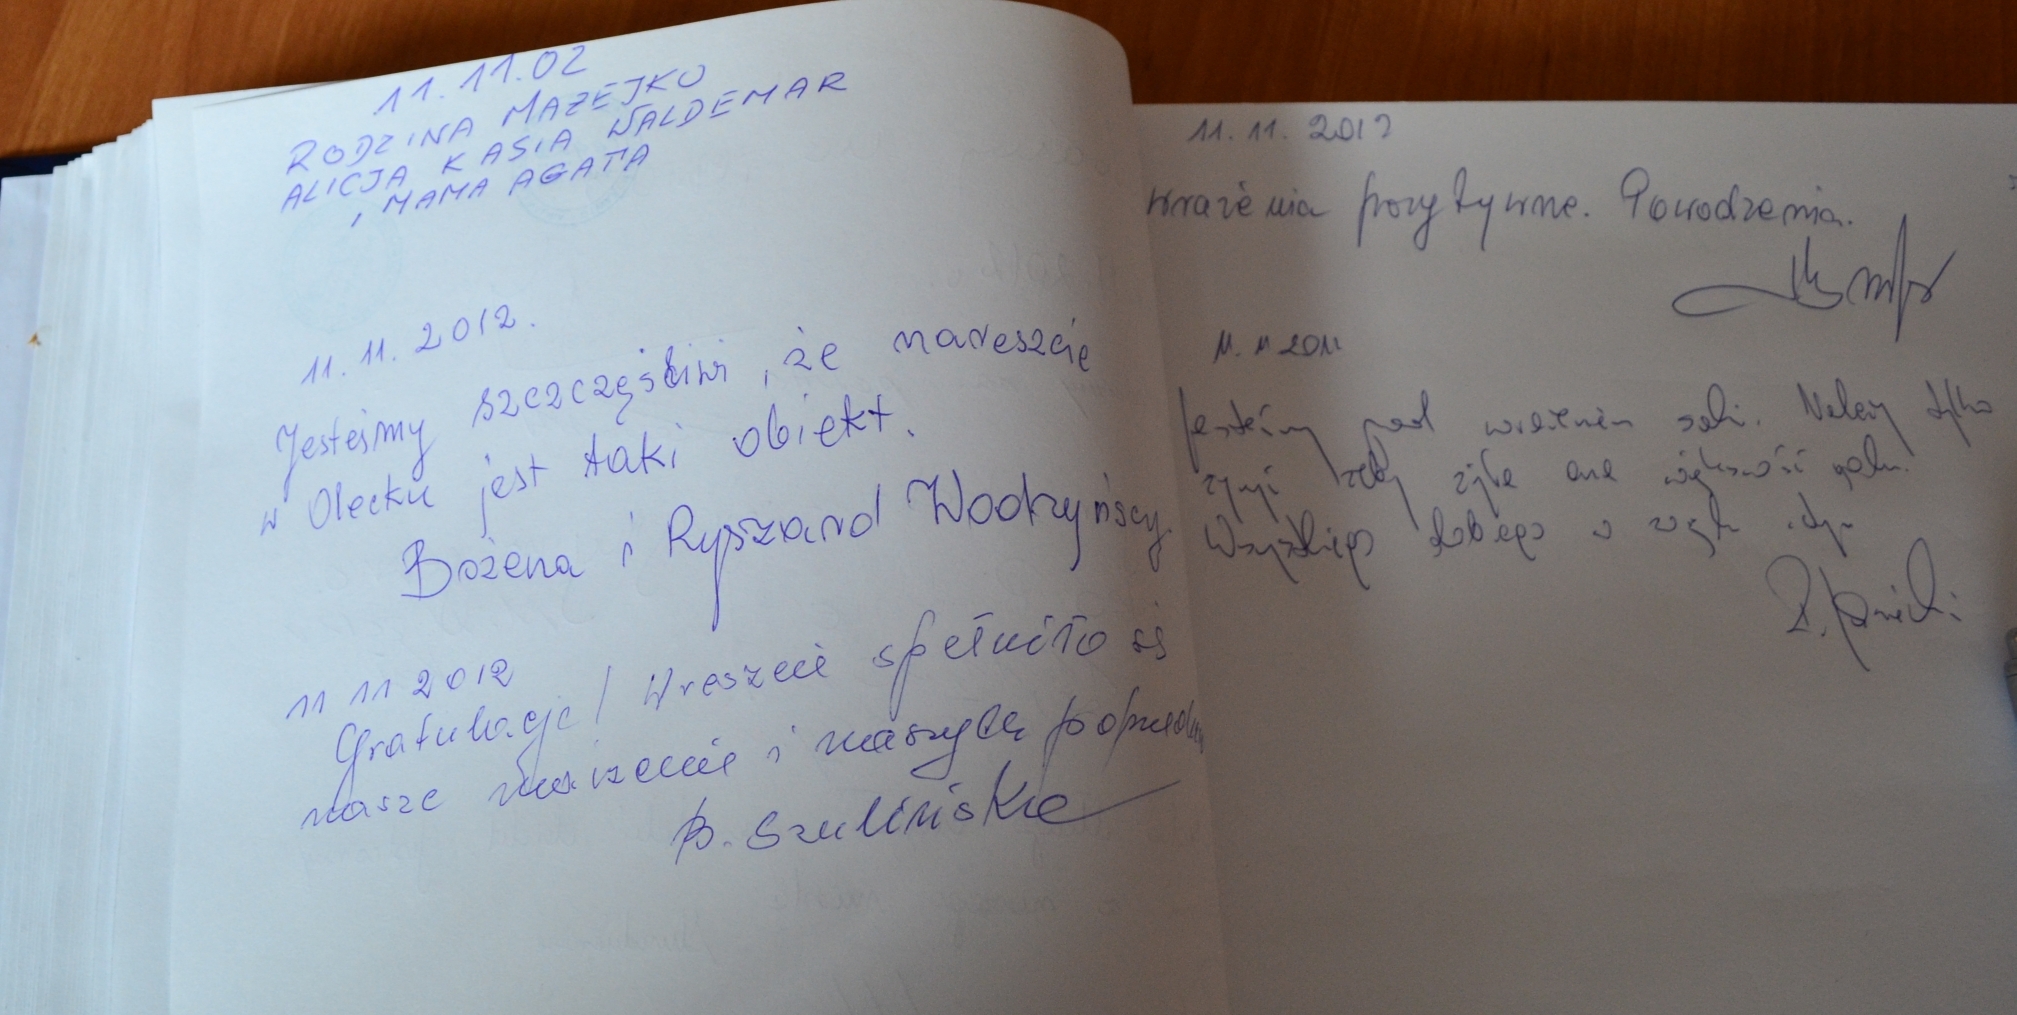 11.11.02
RODZINA MAZEJKO
ALICJA KASIA WALDEMAR
i MAMA AGATA
11.11.2012.
Jesteśmy szczczęśliwi, że nareszcie
w Olecku jest taki obiekt.
Bożena i Ryszard Wodzyńscy
11 11 2012
Gratulacje! Wreszcie spełniło się
nasze marzenie i naszych
B. Szulińska
11.11.2012
Wrażenia pozytywne. Powodzenia.
11.11 2012
Jesteśmy pod wrażeniem sali. Należy tylko
żeby
Wszystkiego dobrego